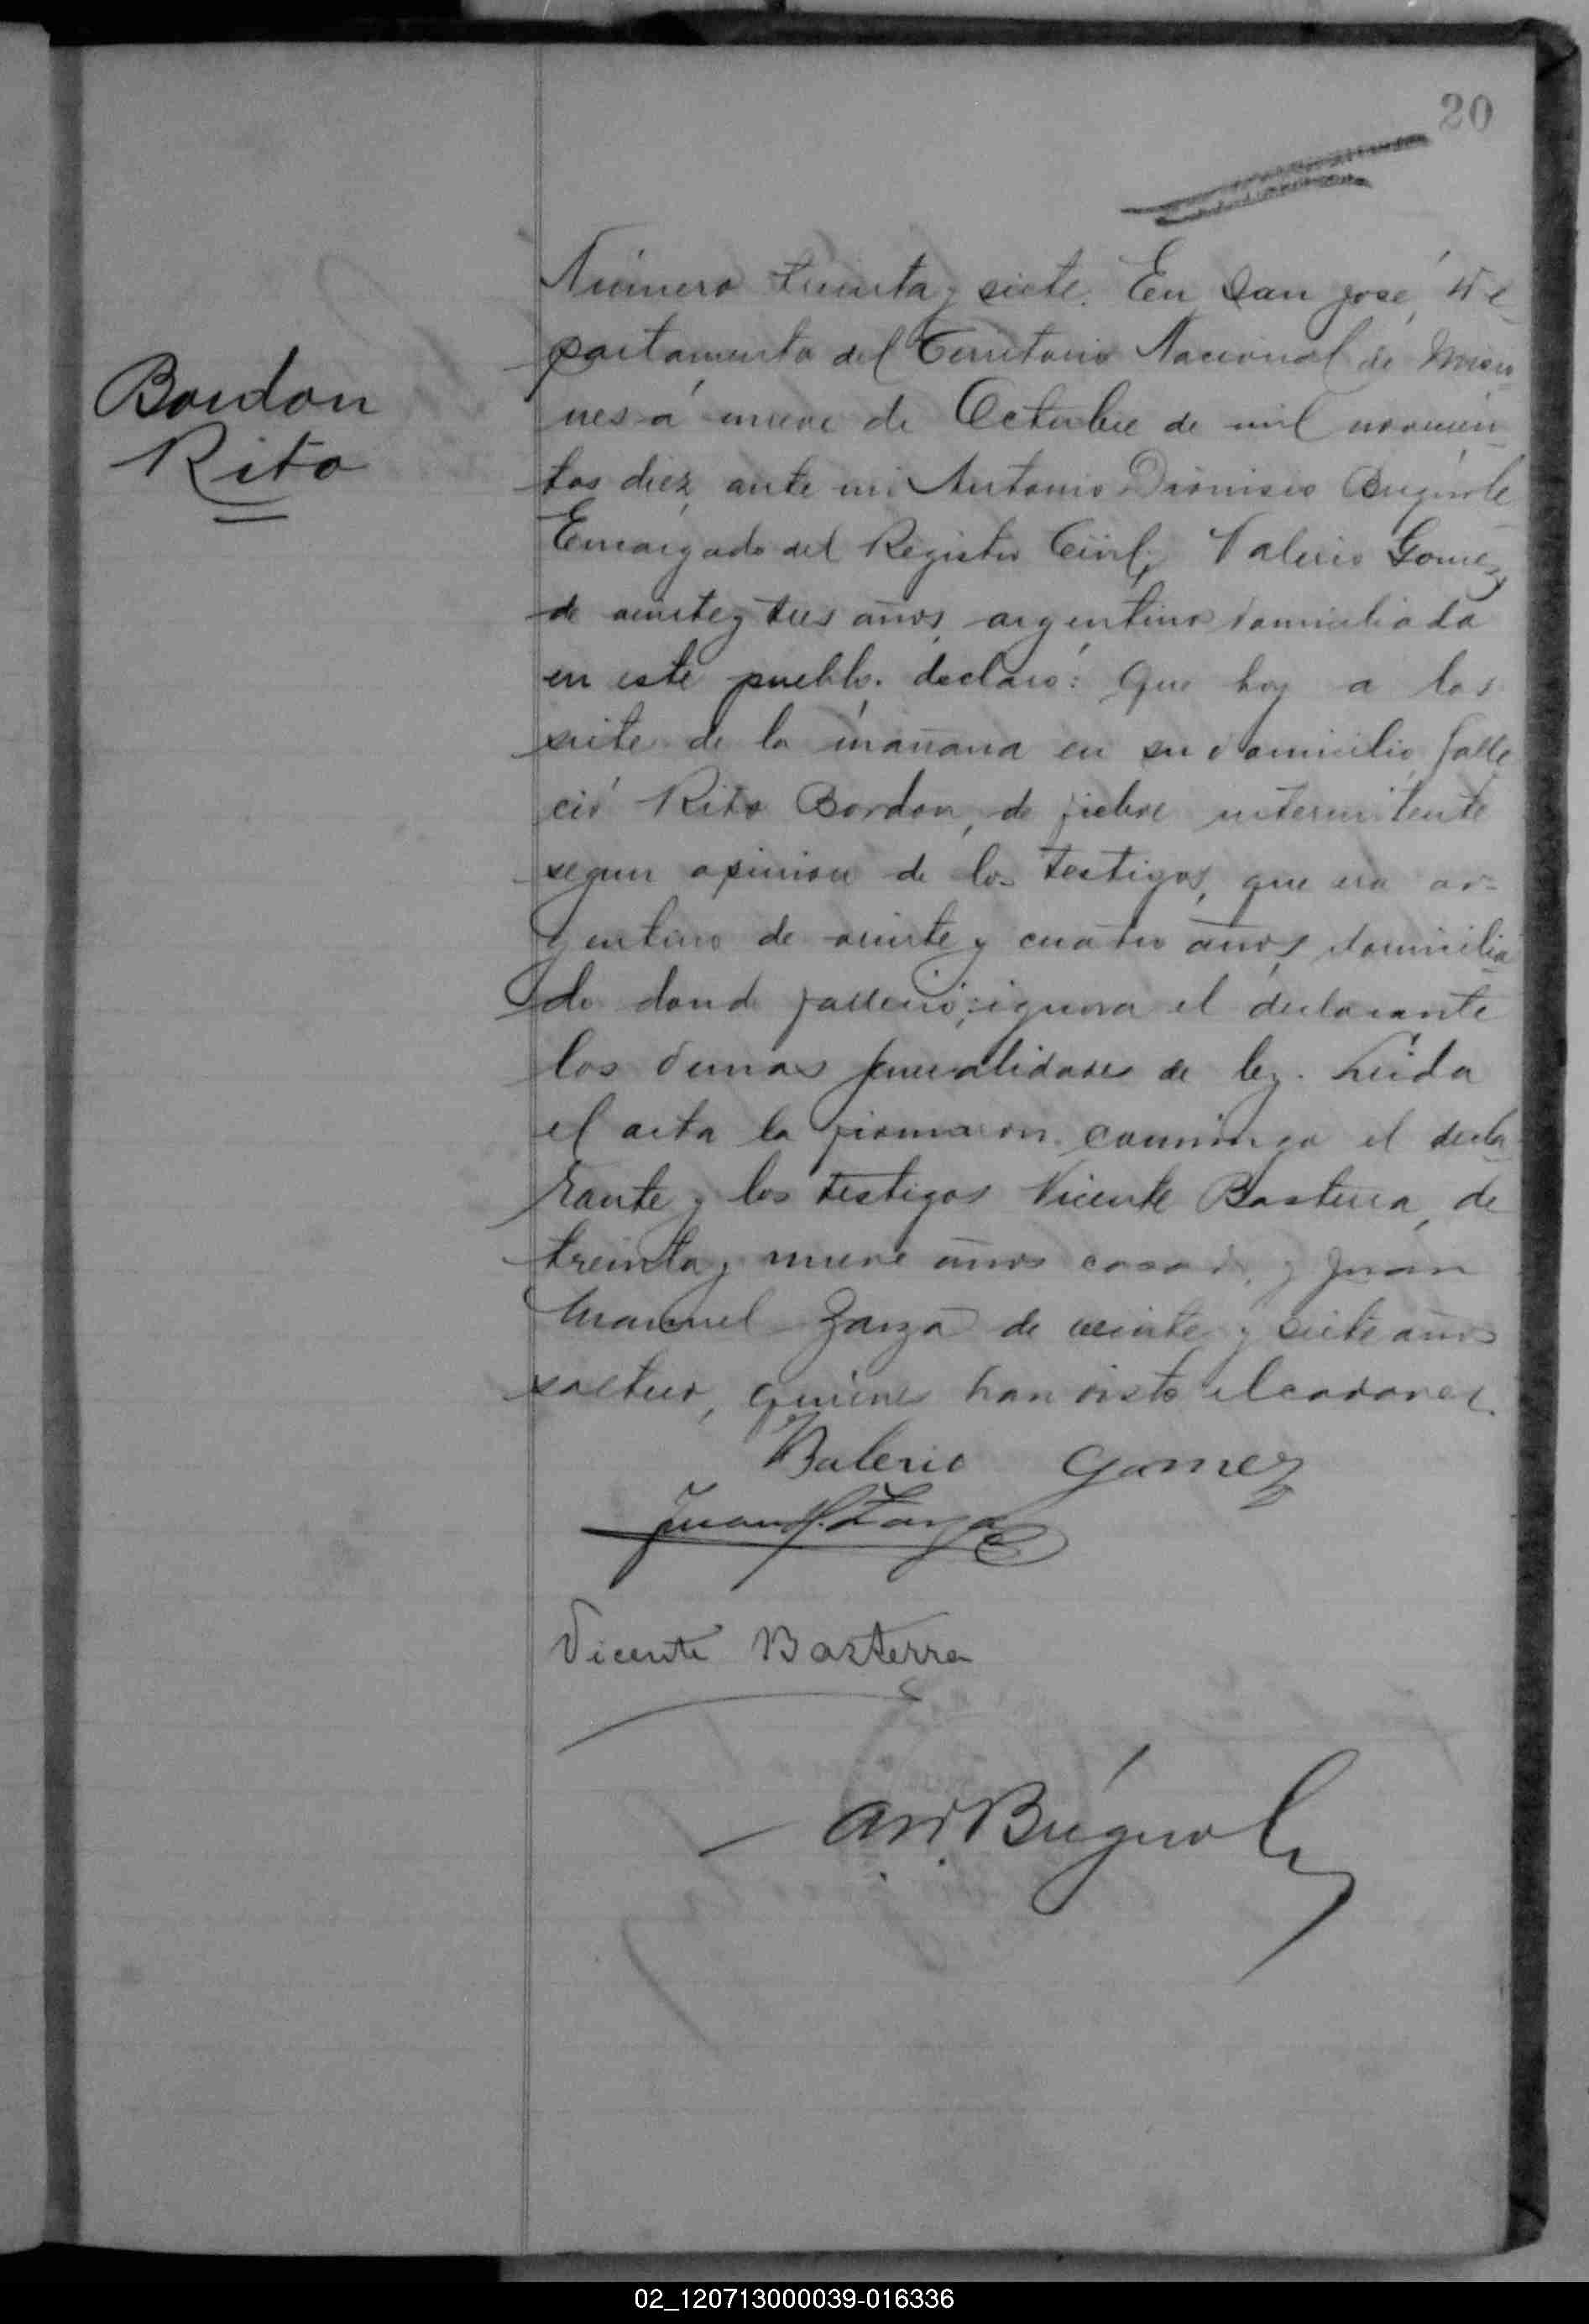 20
Bordon
Rito
Número treinta y siete. En San José, De-
partamento del Territorio Nacional de Mision-
nes á nueve de Octubre de mil novecien-
tos diez, ante mi Antonio Dionisio Bugnole
Encargado del Registro Civil, Valerio Gomez
de veinte y tres años, argentino domiciliado
en este pueblo, declaró: Que hoy a las
siete de la mañana en su domicilio falle-
ció Rito Bordon, de fiebre intermitente
segun opinion de los testigos, que era ar-
gentino de veinte y cuatro años, domicilia-
do dond falleció; ignora el declarante
las demas generalidades de ley. Leida
el acta la firmaron conmigo el decla-
rante y los testigos Vicente Basterra, de
treinta y nueve años casado, y Juan
Manuel Zarza de veinte y siete años
soltero, quienes han visto el cadaver.
Balerio Gomez
Juan M. Zarza
Vicente Basterra
Bugnole
02_120713000039-016336